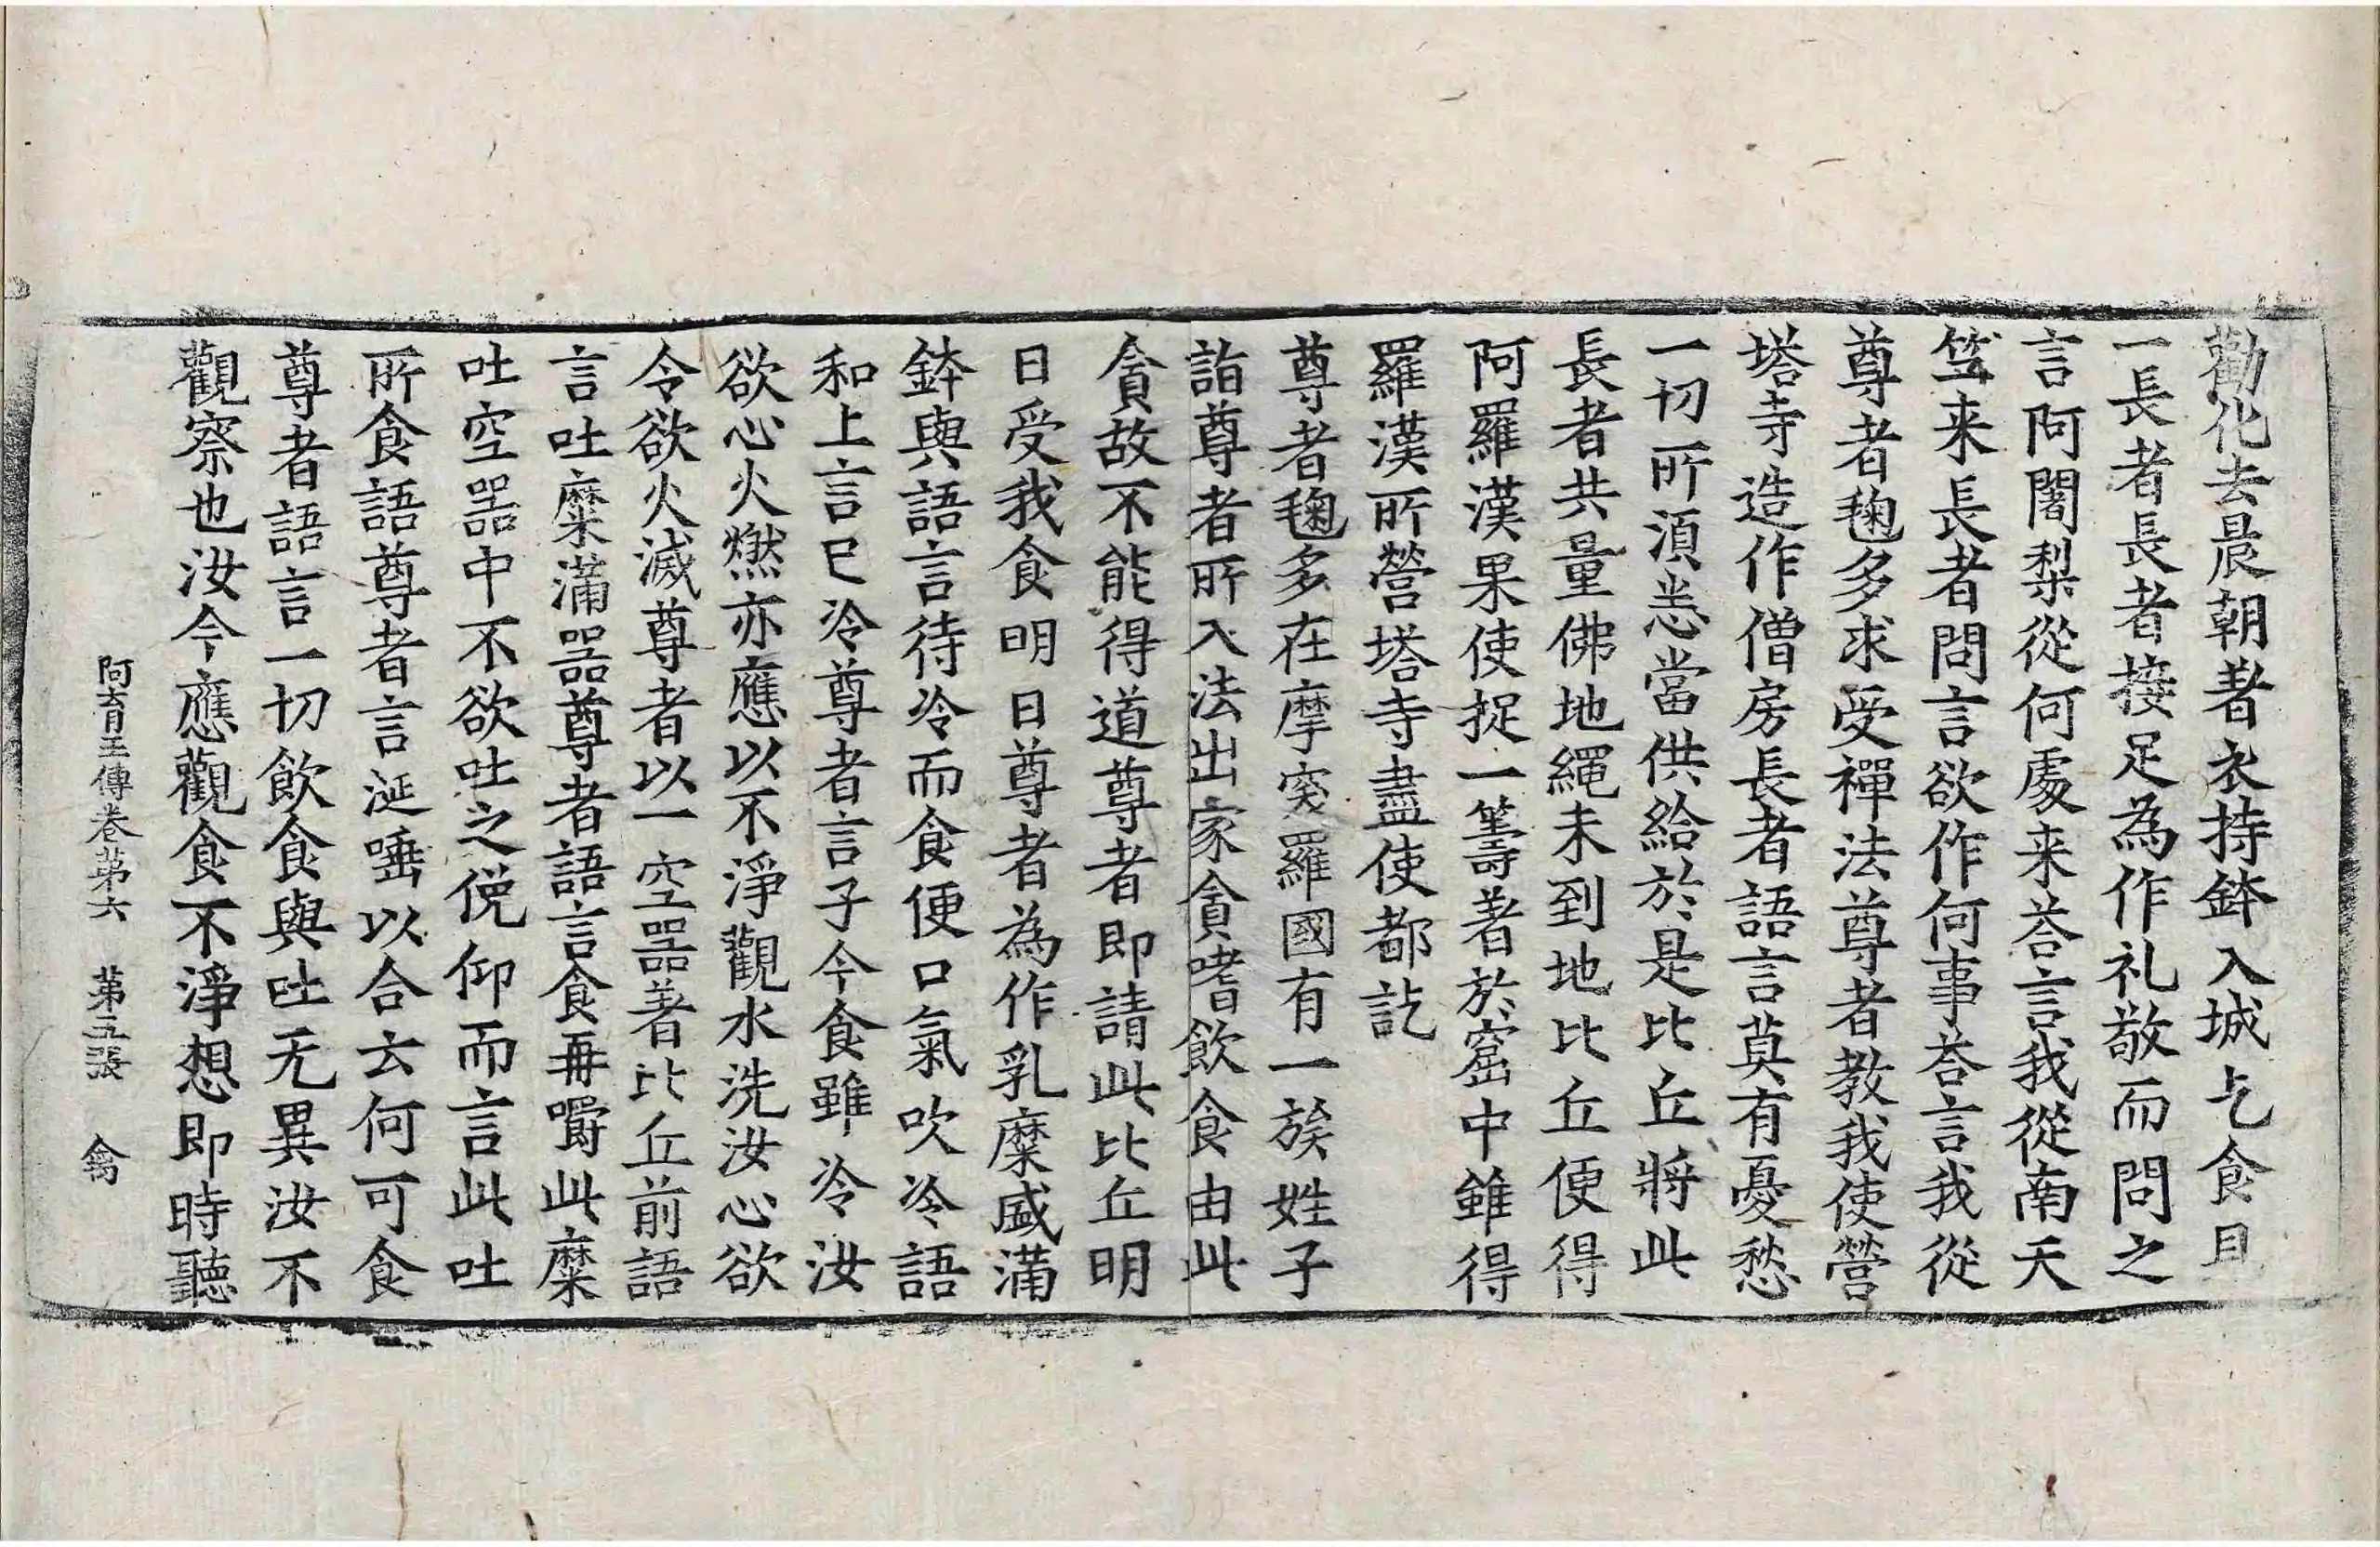 勸化去晨朝著衣持鉢入城乞食見
一長者長者接足為作礼敬而問之
言阿闍梨從何處来荅言我從南天
笁来長者問言欲作何事荅言我從
尊者毱多求受禪法尊者教我使營
塔寺造作僧房長者語言莫有憂愁
一切所須悉當供給於是比丘將此
長者共量佛地繩未到地比丘便得
阿羅漢果使捉一籌著於窟中雖得
羅漢所營塔寺盡使都訖
尊者毱多在摩突羅國有一族姓子
詣尊者所入法出家貪嗜飲食由此
貪故不能得道尊者即請此比丘明
日受我食明日尊者為作乳糜盛滿
鉢與語言待冷而食便口氣吹冷語
和上言已冷尊者言子今食雖冷汝
欲心火燃亦應以不淨觀水洗汝心欲
令欲火滅尊者以一空器著比丘前語
言吐糜滿器尊者語言食再嚼此糜
吐空器中不欲吐之俛仰而言此吐
所食語尊者言涎唾以合云何可食
尊者語言一切飲食與吐无異汝不
觀察也汝今應觀食不淨想即時聽
阿育王傳卷第六　第五張　禽